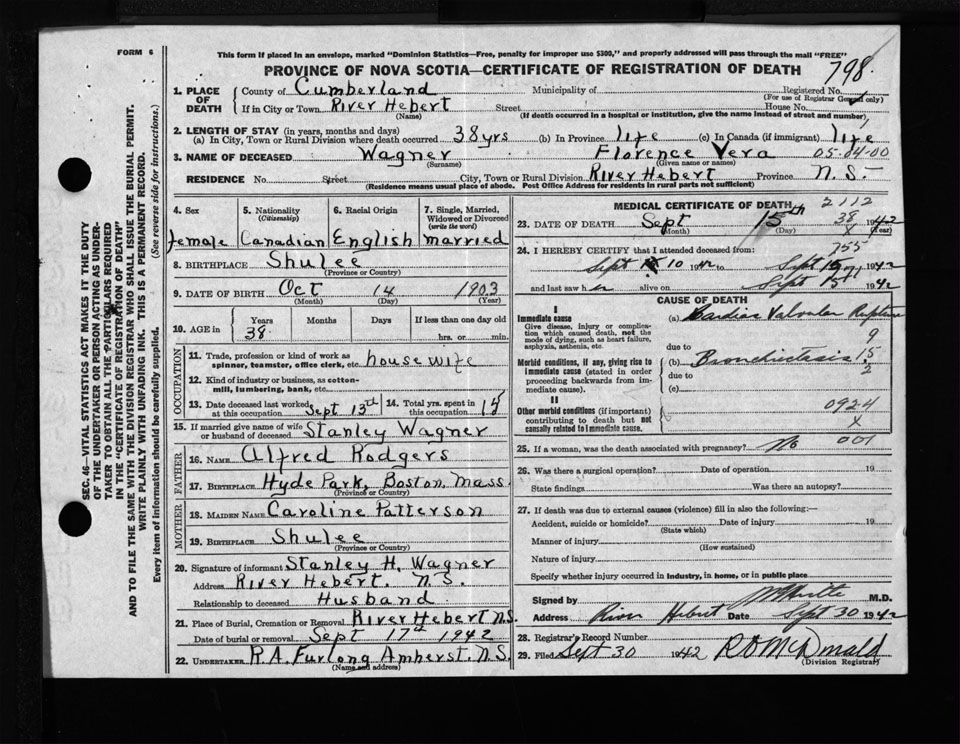 FORM 6
This form if placed in an envelope, marked "Dominion Statistics—Free, penalty for improper use $300," and properly addressed will pass through the mail "FREE"
PROVINCE OF NOVA SCOTIA—CERTIFICATE OF REGISTRATION OF DEATH
798
1. PLACE OF DEATH
County of Cumberland Municipality of Registered No.
(For use of Registrar General only)
If in City or Town River Hebert Street House No.
(Name) (If death occurred in a hospital or institution, give the name instead of street and number)
2. LENGTH OF STAY (in years, months and days)
(a) In City, Town or Rural Division where death occurred 38 yrs (b) In Province life (c) In Canada (if immigrant) life
3. NAME OF DECEASED Wagner Florence Vera 05-04-00
(Surname) (Given name or names)
RESIDENCE No. Street City, Town or Rural Division River Hebert Province N.S.
(Residence means usual place of abode. Post Office Address for residents in rural parts not sufficient)
4. Sex 5. Nationality (Citizenship) 6. Racial Origin 7. Single, Married, Widowed or Divorced (write the word)
female Canadian English married
8. BIRTHPLACE Shulee
(Province or Country)
9. DATE OF BIRTH Oct 14 1903
(Month) (Day) (Year)
10. AGE in Years Months Days If less than one day old
38 hrs. or min.
OCCUPATION
11. Trade, profession or kind of work as spinner, teamster, office clerk, etc. housewife
12. Kind of industry or business, as cotton-mill, lumbering, bank, etc.
13. Date deceased last worked at this occupation Sept 13th 14. Total yrs. spent in this occupation 15
15. If married give name of wife or husband of deceased Stanley Wagner
FATHER
16. NAME Alfred Rodgers
17. BIRTHPLACE Hyde Park, Boston, Mass.
(Province or Country)
MOTHER
18. MAIDEN NAME Caroline Patterson
19. BIRTHPLACE Shulee
(Province or Country)
20. Signature of informant Stanley H. Wagner
Address River Hebert. N.S.
Relationship to deceased Husband
21. Place of Burial, Cremation or Removal River Hebert N.S.
Date of burial or removal Sept 17th 1942
22. UNDERTAKER R.A. Furlong Amherst. N.S.
(Name and address)
MEDICAL CERTIFICATE OF DEATH 2112
38
23. DATE OF DEATH Sept 15th 1942
(Month) (Day) x (Year)
24. I HEREBY CERTIFY that I attended deceased from: 755
Sept 10 1942 to Sept 15 1942
and last saw her alive on Sept 15 1942
CAUSE OF DEATH
I
Immediate cause (a) Cardiac Valvular Rupture
Give disease, injury or complication which caused death, not the mode of dying, such as heart failure, asphyxia, asthenia, etc.
9
due to
Morbid conditions, if any, giving rise to immediate cause (stated in order proceeding backwards from immediate cause). (b) Bronchiectasis 15
2
due to
(c)
II
Other morbid conditions (if important) contributing to death but not causally related to immediate cause.
0924
x
25. If a woman, was the death associated with pregnancy? No 001
26. Was there a surgical operation? Date of operation 19
State findings Was there an autopsy?
27. If death was due to external causes (violence) fill in also the following:—
Accident, suicide or homicide? Date of injury 19
(State which)
Manner of injury
(How sustained)
Nature of injury
Specify whether injury occurred in industry, in home, or in public place
Signed by M.D.
Address River Hebert Date Sept 30 1942
28. Registrar's Record Number
29. Filed Sept 30 1942 R D McDonald
(Division Registrar)
SEC. 46—VITAL STATISTICS ACT MAKES IT THE DUTY
OF THE UNDERTAKER OR PERSON ACTING AS UNDER-
TAKER TO OBTAIN ALL THE PARTICULARS REQUIRED
IN THE "CERTIFICATE OF REGISTRATION OF DEATH"
AND TO FILE THE SAME WITH THE DIVISION REGISTRAR WHO SHALL ISSUE THE BURIAL PERMIT.
WRITE PLAINLY WITH UNFADING INK. THIS IS A PERMANENT RECORD.
Every item of information should be carefully supplied. (See reverse side for instructions.)